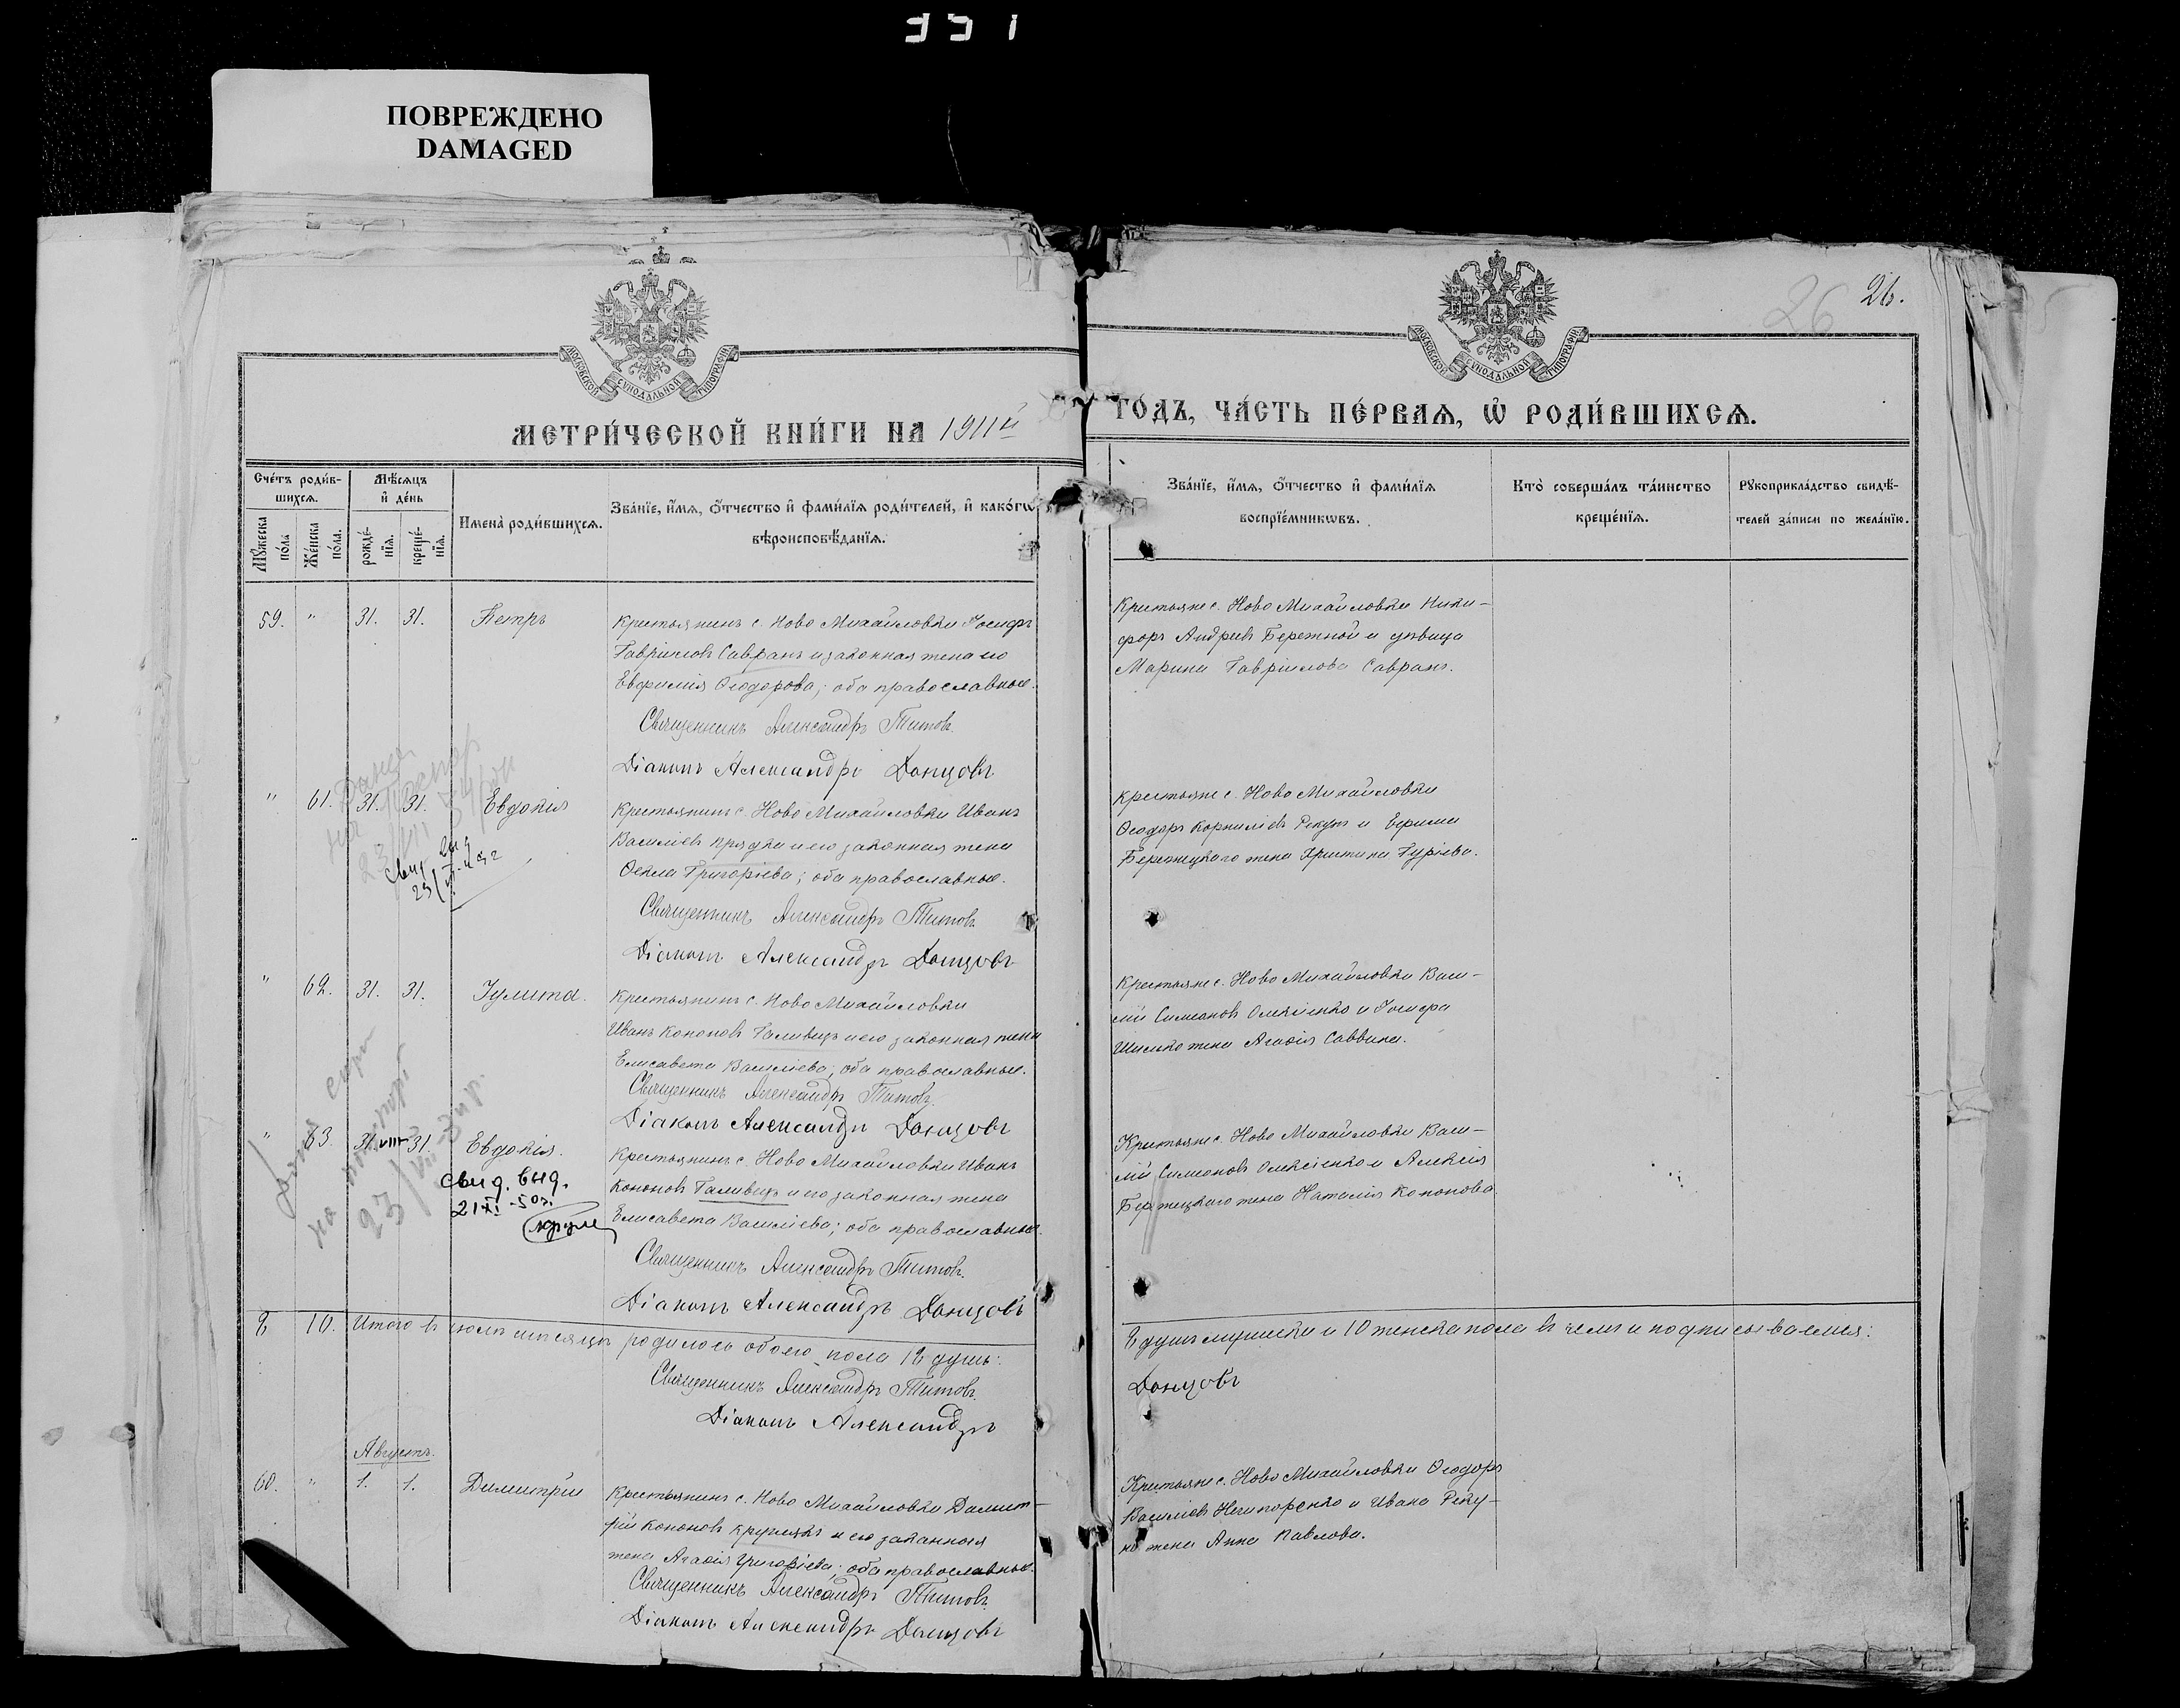 351
ПОВРЕЖДЕНО
DAMAGED
26.
26
МОСКОВСКОЙ СѴНОДАЛЬНОЙ ТИПОГРАФІИ
МОСКОВСКОЙ СѴНОДАЛЬНОЙ ТИПОГРАФІИ
МЕТРИ́ЧЕСКОЙ КНИ́ГИ НА 1911й
ГО́ДЪ, ЧА́СТЬ ПЕ́РВАѦ, Ѡ҆ РОДИ́ВШИХСѦ.
Сче́тъ роди́в-
шихсѧ.
Мꙋ́жеска по́ла
Же́нска по́ла.
Мѣ́сѧцъ
и҆ де́нь
рожде́-
нїѧ.
креще́-
нїѧ.
Имена̀ роди́вшихсѧ.
Зва́нїе, и҆́мѧ, ѻ҆́тчество и҆ фами́лїѧ роди́телей, и҆ како́гѡ
вѣроисповѣ́данїѧ.
Зва́нїе, и҆́мѧ, ѻ҆́тчество и҆ фами́лїѧ
воспрїе́мникѡвъ.
Кто̀ соверша́лъ та́инство
креще́нїѧ.
Рꙋкоприкла́дство свидѣ́-
телей за́писи по жела́нїю.
59. " 31. 31. Петръ
Крестьянинъ с. Ново Михайловки Іосифъ
Гавріиловъ Савранъ и законная жена его
Евфимія Ѳеодорова; оба православные.
Священникъ Александръ Титовъ.
Діаконъ Александръ Донцовъ
Крестьяне с. Ново Михайловки Ники-
форъ Андреевъ Бережной и девица
Марина Гавріилова Савранъ.
" 61. 31. 31. Евдокія
Крестьянинъ с. Ново Михайловки Иванъ
Василіевъ Прядка и его законная жена
Ѳекла Григоріева; оба православные.
Священникъ Александръ Титовъ
Діаконъ Александръ Донцовъ
Крестьяне с. Ново Михайловки
Ѳеодоръ Корниліевъ Рекунъ и Ефима
Бережецкаго жена Христина Гуріева.
" 62. 31. 31. Іулита.
Крестьянинъ с. Ново Михайловки
Иванъ Кононовъ Галивецъ и его законная жена
Елисавета Василіева; оба православные.
Священникъ Александръ Титовъ.
Діаконъ Александръ Донцовъ
Крестьяне с. Ново Михайловки Васи-
лій Симеоновъ Олексіенко и Іосифа
Шилько жена Агафія Саввина.
" 63. 31. VIII 31. Евдокія.
свид. выд.
21 XI -50г.
Крестьянинъ с. Ново Михайловки Иванъ
Кононовъ Галивецъ и его законная жена
Елисавета Василіева; оба православные.
Священникъ Александръ Титовъ.
Діаконъ Александръ Донцовъ
Крестьяне с. Ново Михайловки Васи-
лій Симеоновъ Олексіенко и Алексія
Бережецкаго жена Наталія Кононова.
8 10. Итого въ іюлѣ месяцѣ родилось обоего пола 18 душъ:
8 душъ мужеска и 10 женска пола въ чемъ и подписываемся:
Священникъ Александръ Титовъ.
Діаконъ Александръ
Донцовъ
Августъ.
60. " 1. 1. Димитрій
Крестьянинъ с. Ново Михайловки Димит-
рій Кононовъ Круглякъ и его законная
жена Агафія Григоріева; оба православные.
Священникъ Александръ Титовъ.
Діаконъ Александръ Донцовъ
Крестьяне с. Ново Михайловки Ѳеодоръ
Василіевъ Нечипоренко и Ивана Реку-
на жена Анна Павлова.